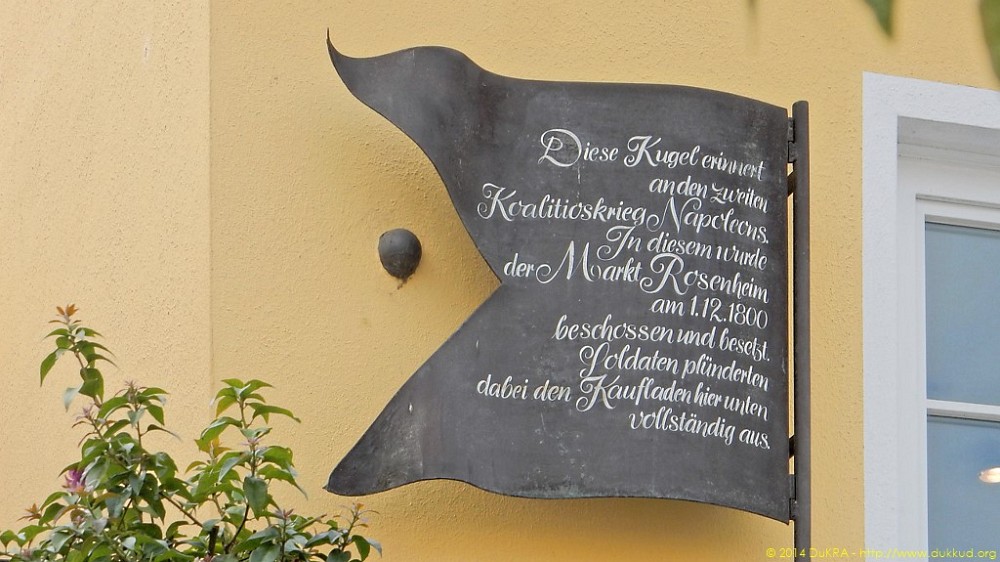 Diese Kugel erinnert
an den zweiten
Koalitioskrieg Napoleons.
In diesem wurde
der Markt Rosenheim
am 1.12.1800
beschossen und besetzt.
Soldaten plünderten
dabei den Kaufladen hier unten
vollständig aus.
© 2014 DuKRA - http://www.dukkud.org